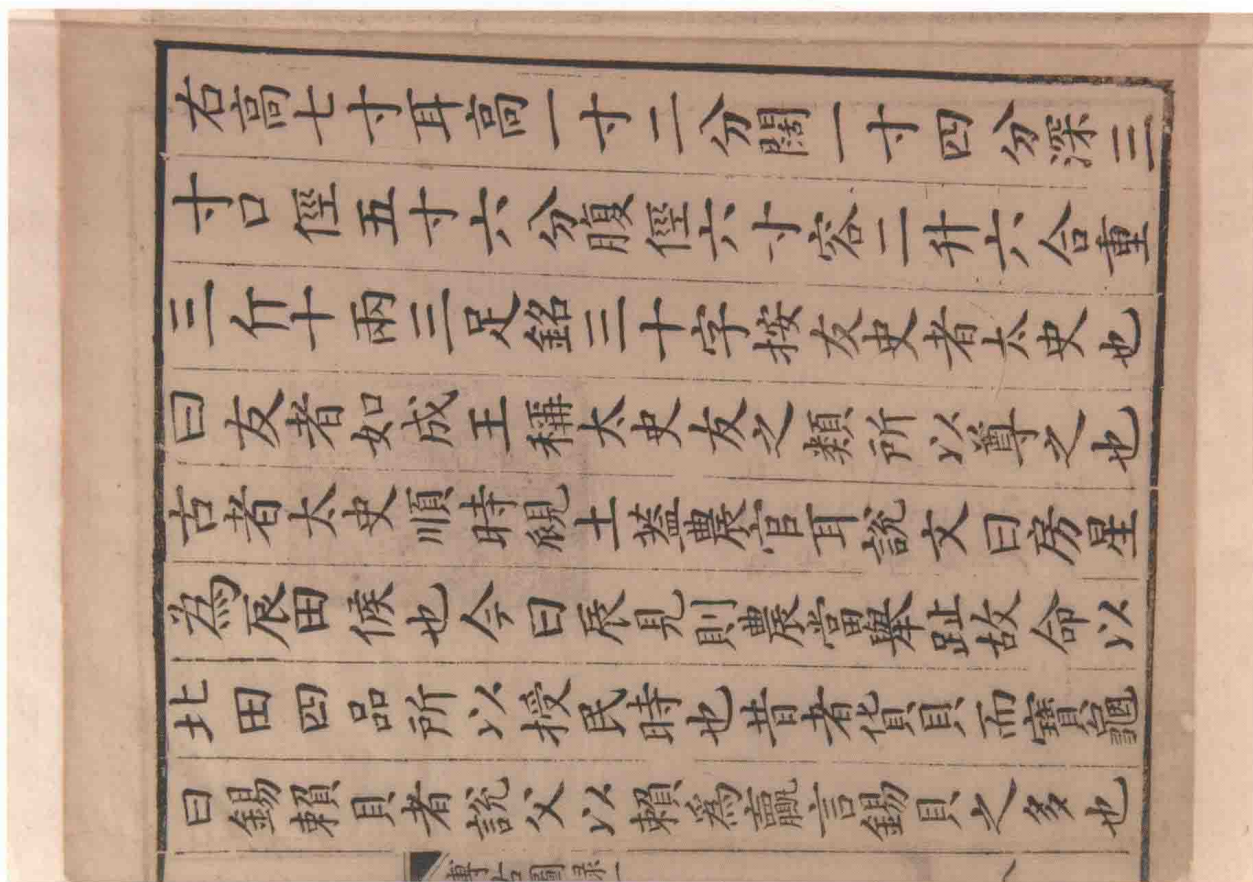 右高七寸耳高一寸二分闊一寸四分深三
寸口徑五寸六分腹徑六寸容二升六合重
三斤十兩三足銘三十字按友史者太史也
曰友者如成王稱太史友之類所以尊之也
古者太史順時覛土葢農官耳說文曰房星
為辰田候也今曰辰見則農當舉趾故命以
北田四品所以授民時也昔者貨貝而寶龜
曰錫賴貝者說父以賴為贏言錫貝之多也
博古圖录一